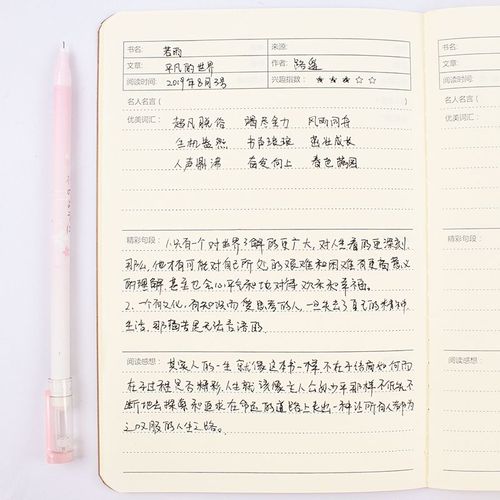 书名: 若雨 来源:
文章: 平凡的世界 作者: 路遥
阅读时间: 2019年8月3号 兴趣指数: ★★★☆☆
名人名言(
优美词汇: 超凡脱俗 竭尽全力 风雨同舟
生机盎然 书声琅琅 茁壮成长
人声鼎沸 奋发向上 春色满园
精彩句段: 1.只有一个对世界了解的更广大,对人生看的更深刻
那么,他才有可能对自己所处的艰难和困难有更高意义
的理解,甚至也会心平气和地对待欢乐和幸福。
2、一个有文化,有知识而爱思考的人,一旦失去了自己的精神
生活,那痛苦是无法言语的
阅读感想: 其实人的一生就像这本书一样不在于结局如何而
在于过程是否精彩,人生就该像主人公的少平那样不低头不
断地去探索和追求在命运的道路上走出一种让所有人都为
之叹服的人生之路。
书名:
文章:
阅读时间:
名人名言(
优美词汇:
精彩句段:
阅读感想: